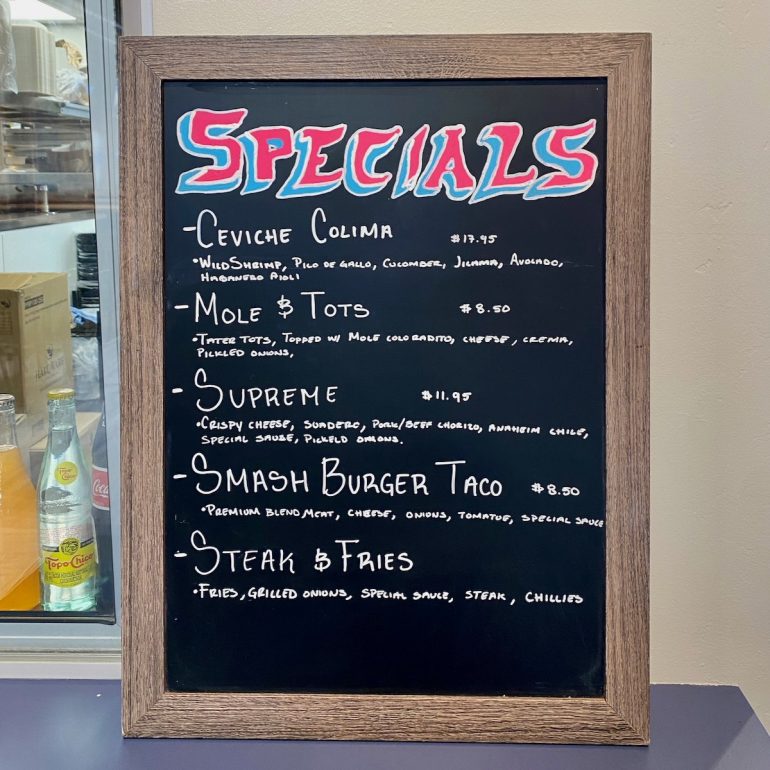 SPECIALS
-CEVICHE COLIMA $17.95
•WILD SHRIMP, PICO DE GALLO, CUCOMBER, JICAMA, AVOCADO,
HABANERO AIOLI
-MOLE & TOTS $8.50
•TATER TOTS, TOPPED W/ MOLE COLORADITO, CHEESE, CREMA,
PICKLED ONIONS,
-SUPREME $11.95
•CRISPY CHEESE, SUADERO, PORK/BEEF CHORIZO, ANAHEIM CHILE,
SPECIAL SAUSE, PICKELD ONIONS.
-SMASH BURGER TACO $8.50
•PREMIUM BLEND MEAT, CHEESE, ONIONS, TOMATOE, SPECIAL SAUCE
-STEAK & FRIES
•FRIES, GRILLED ONIONS, SPECIAL SAUCE, STEAK, CHILLIES
Topo Chico
Topo-Chico
Coca